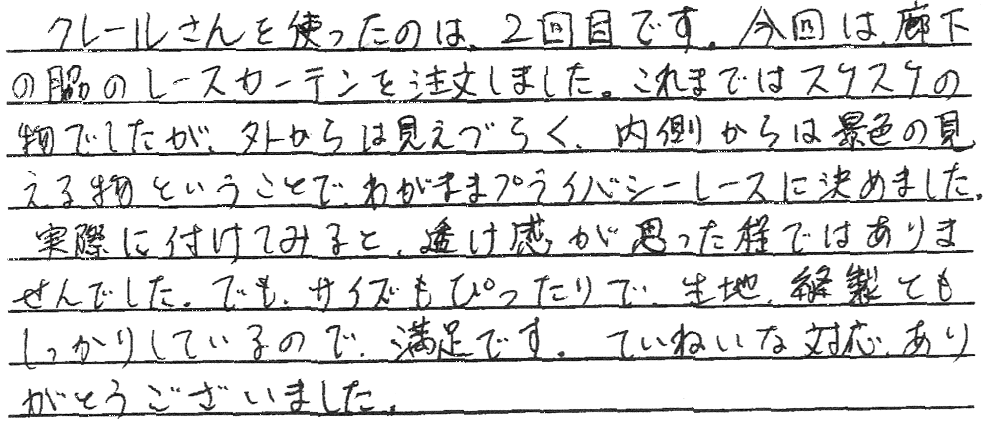 クレールさんを使ったのは、2回目です。今回は、廊下
の脇のレースカーテンを注文しました。これまではスケスケの
物でしたが、外からは見えづらく、内側からは景色の見
える物ということで、わがままプライバシーレースに決めました。
実際に付けてみると、透け感が思った程ではありま
せんでした。でも、サイズもぴったりで、生地、縫製とも
しっかりしているので、満足です。ていねいな対応、あり
がとうございました。